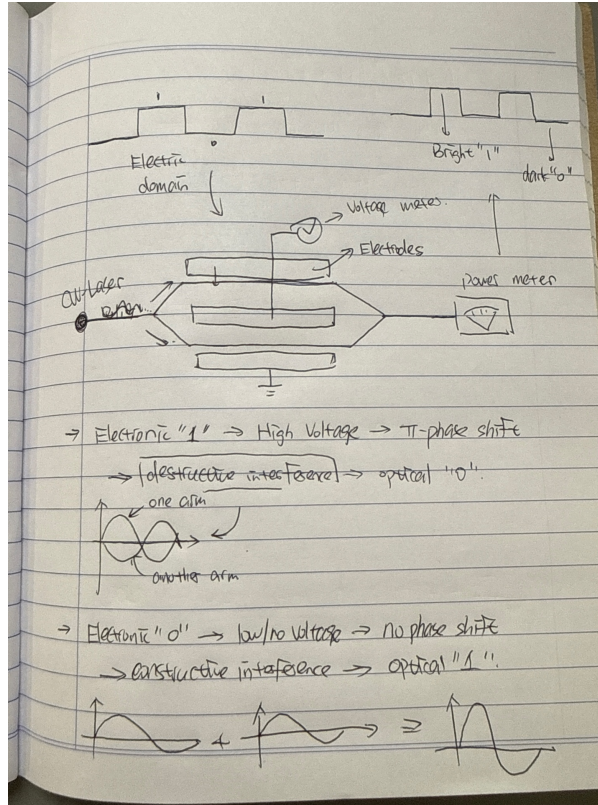 1 1
0
Electric
domain
Bright "1"
dark "0"
Voltage meter.
Electrodes
CW Laser
power meter
→ Electronic "1" → High Voltage → π-phase shift
→ destructive interference → optical "0".
one arm
another arm
→ Electronic "0" → low/no voltage → no phase shift
→ constructive inteference → optical "1".
+ =